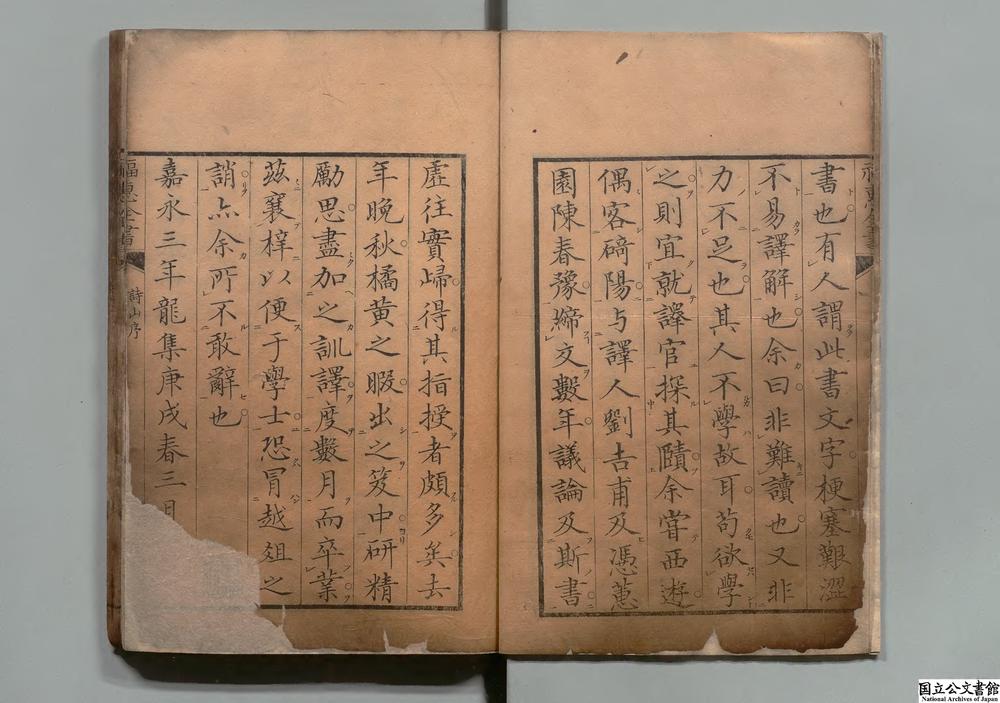 書也有人謂此書文字梗塞艱澀
不易譯解也余曰非難讀也又非
力不足也其人不學故耳苟欲學
之則宜就譯官探其賾余嘗西遊
偶客碕陽与譯人劉吉甫及馮蕙
園陳春豫締文數年議論及斯書
虚往實歸得其指授者頗多矣去
年晩秋橘黄之暇出之笈中研精
勵思盡加之訓譯度數月而卒業
茲襄梓以便于學士恐冒越俎之
誚亦余所不敢辭也
嘉永三年龍集庚戌春三月
福惠全書
詩山序
国立公文書館
National Archives of Japan